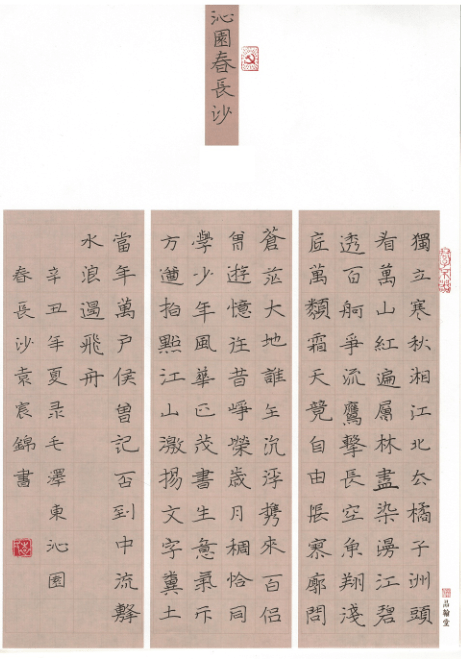 沁園春長沙
獨立寒秋湘江北去橘子洲頭
看萬山紅遍層林盡染漫江碧
透百舸爭流鷹擊長空魚翔淺
底萬類霜天競自由悵寥廓問
蒼茫大地誰主沉浮携來百侶
曾遊憶往昔崢嶸歲月稠恰同
學少年風華正茂書生意氣斥
方遒指點江山激揚文字糞土
當年萬戶侯曾記否到中流擊
水浪遏飛舟
辛丑年夏录毛澤東沁園
春長沙袁宸錦書
品翰堂